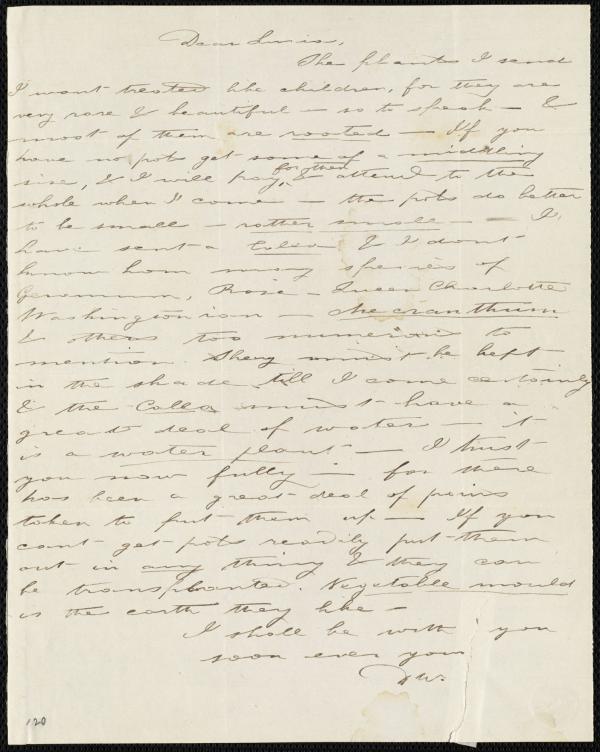 Dear Lucia,
The plants I send
I want treated like children, for they are
very rare & beautiful — so to speak — &
most of them are rooted — If you
have no pots get some of a middling
for them
size, & I will pay, & attend to the
whole when I come — the pots do better
to be small — rather small — — I
have sent a Calla & I dont
know how many species of
Geranium, Rose — Queen Charlotte
Washingtonian —
& others too numerous to
mention. They must be kept
in the shade till I come certainly
& the Calla must have a
great deal of water — it
is a water plant — I trust
you now fully — for there
has been a great deal of pains
taken to put them up — If you
cant get pots readily put them
out in any thing & they can
be transplanted. Vegetable mould
is the earth they like —
I shall be with you
soon ever your
DW.
120